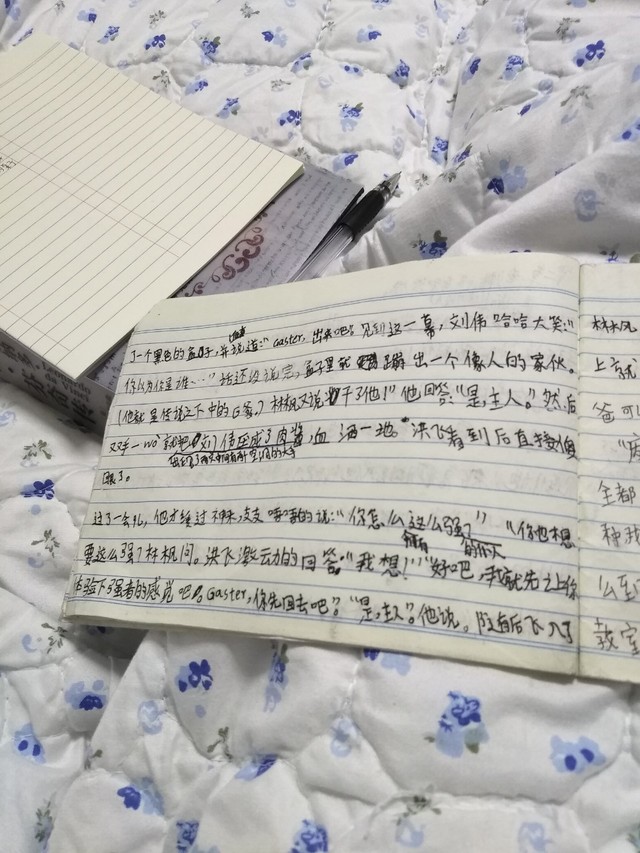 了一个黑色的盒子,并说道:"Gaster,出来吧"见到这一幕,刘伟哈哈大笑:"
你以为你是谁……"话还没说完,盒子里就蹦出一个像人的家伙。
(他就是传说之下中的G爹)林枫又说"干了他!"他回答:"是,主人。"然后
双手一wo 刘伟压成了肉酱,血洒一地。洪飞看到后直接傻
眼了。
过了一会儿,他才缓过神来,支支吾吾的说:"你怎么这么强?""你也想
拥有 的
要这么强?林枫问。洪飞激动的回答:"我想!""好吧,我就先让你
体验下强者的感觉吧。Gaster,你先回去吧?""是,主人"他说。随后飞入了
林枫
上就
爸可
全都
种我
么至
教室